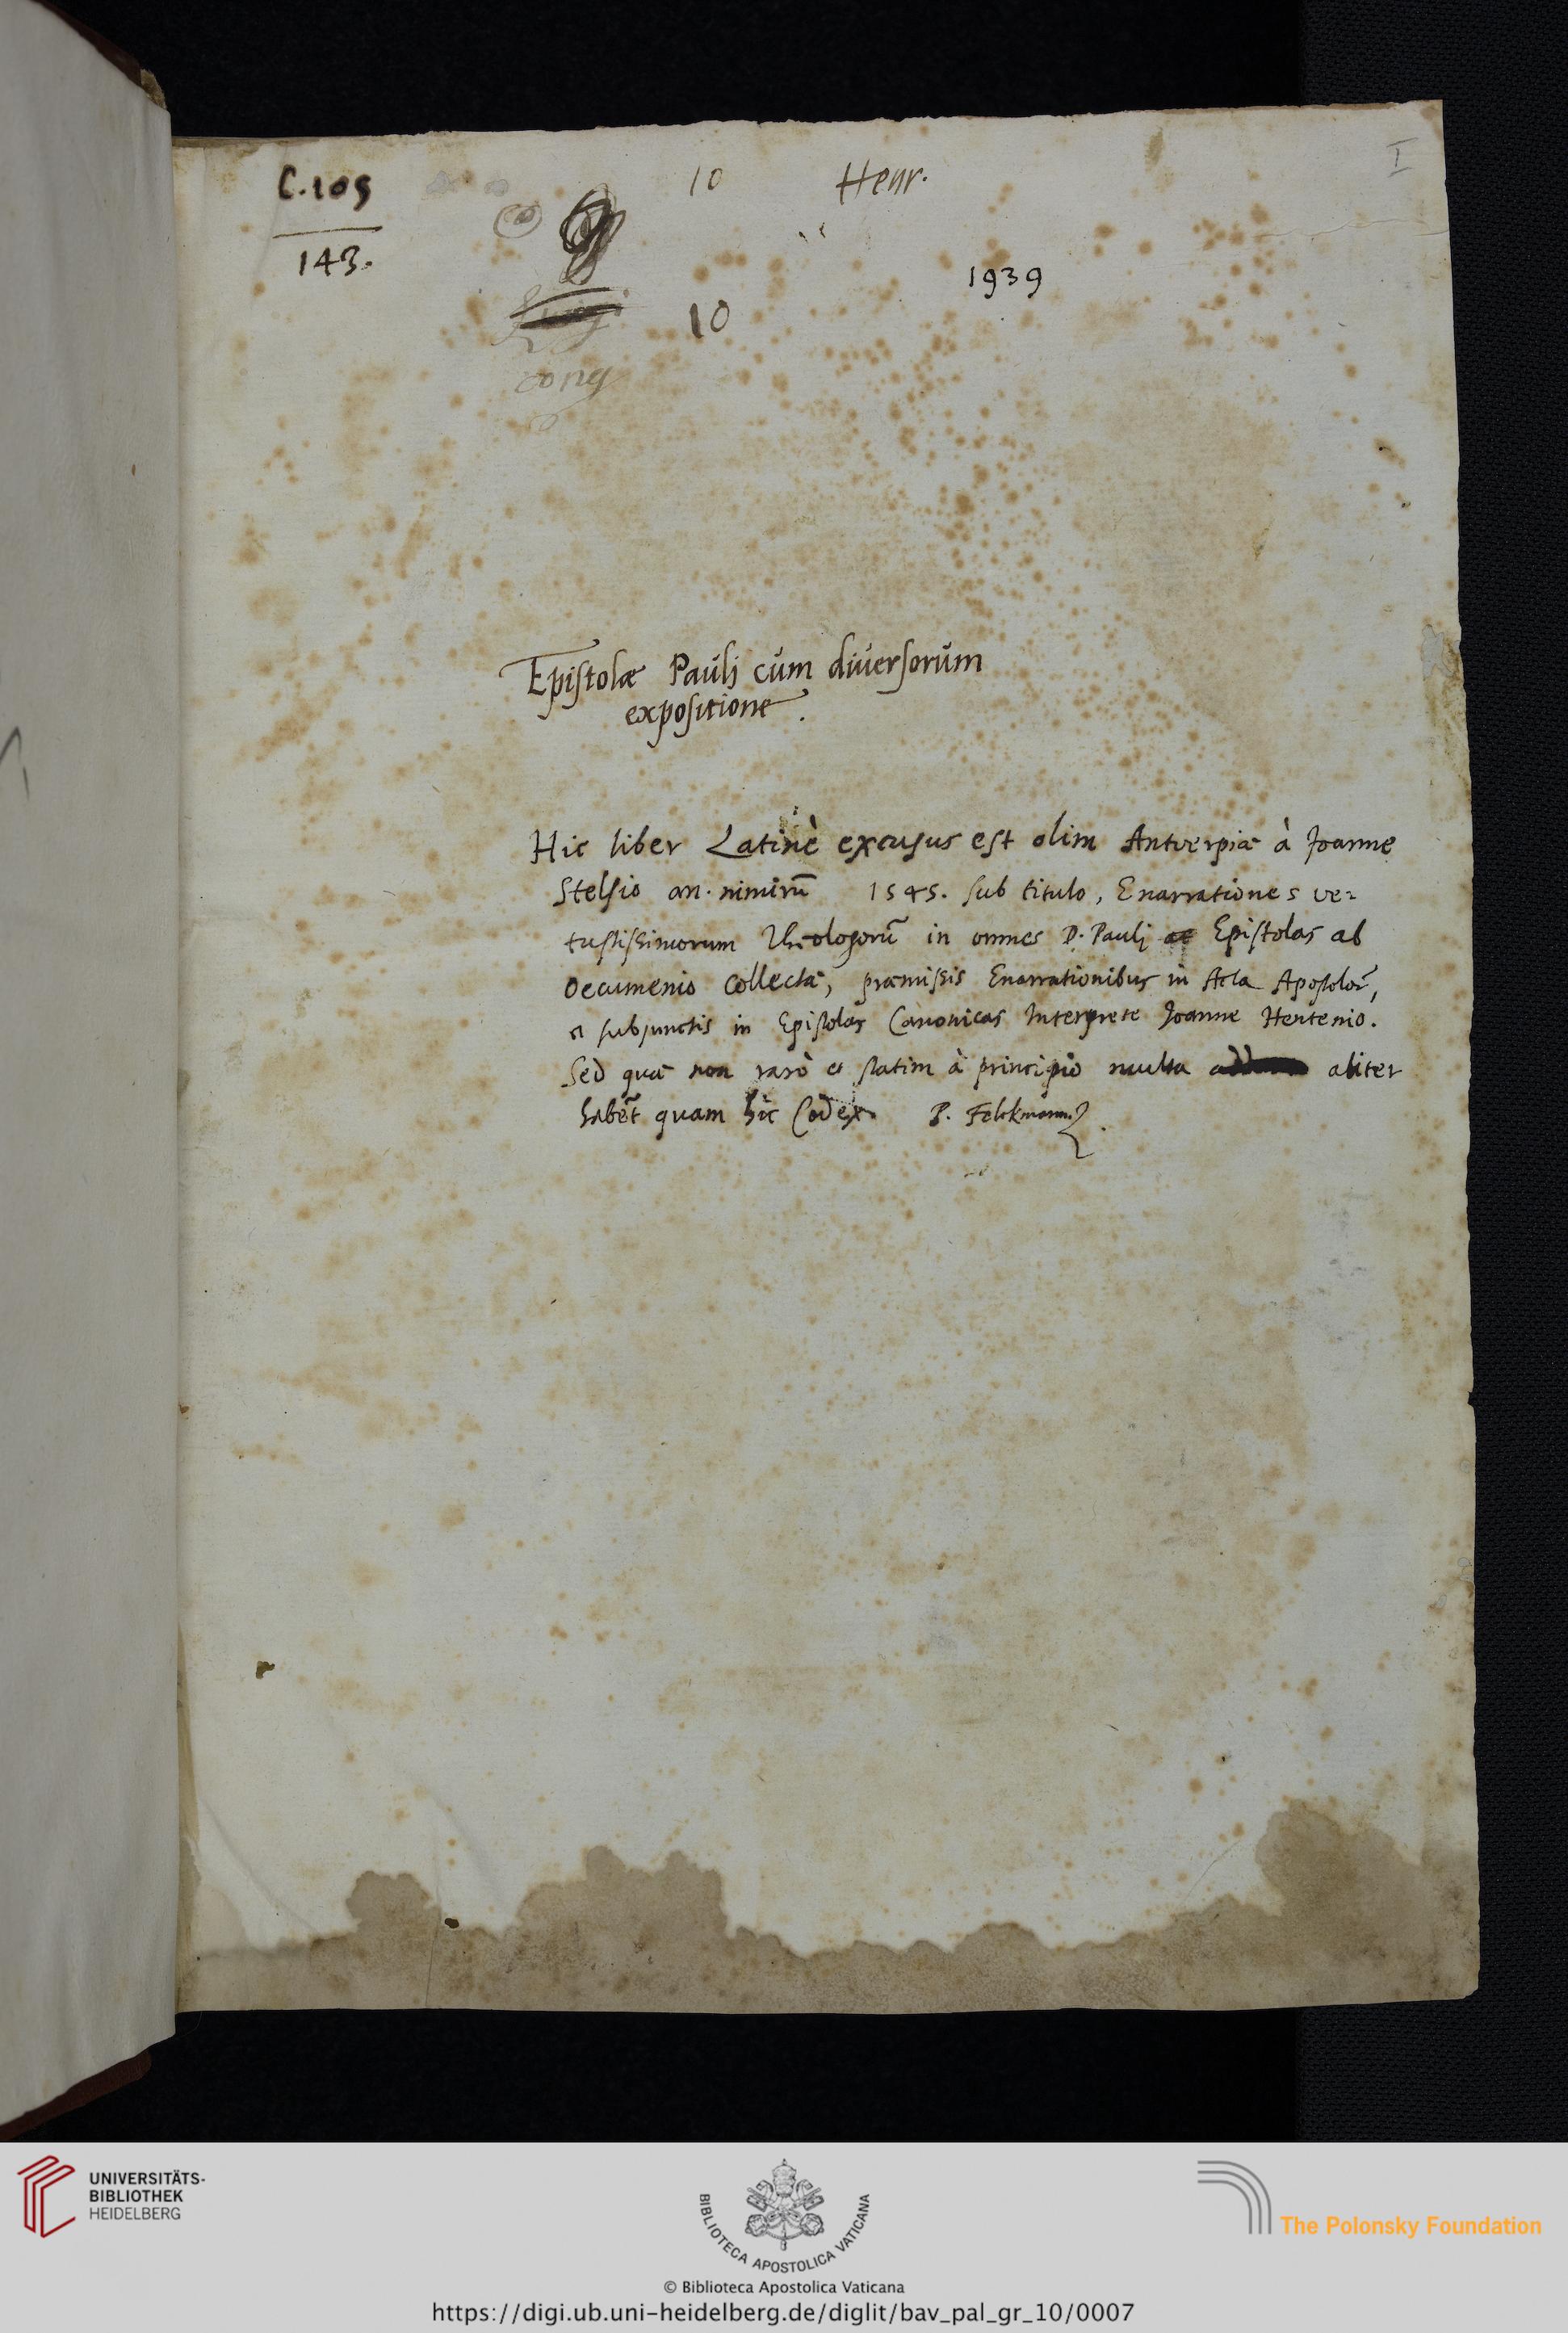 I
C. 109
143.
10 Henr.
1939
10
cong
Epistolæ Paulj cùm diuersorùm
expositione.
Hic liber Latinè excusus est olim Antverpiæ à Joanne
Stelsio an. nimirũ 1545. sub titulo, Enarrationes ve-
tustissimorum Theologorũ in omnes D. Paulj Epistolas ab
Oecumenio collectæ, præmissis Enarrationibus in Acta Apostolor̃,
et subjunctis in Epistolas Canonicas Interprete Joanne Hentenio.
Sed quæ non rarò et statim à principio multa aliter
habẽt quam hic Codex. P. Felckmann.
UNIVERSITÄTS-
BIBLIOTHEK
HEIDELBERG
BIBLIOTECA APOSTOLICA VATICANA
© Biblioteca Apostolica Vaticana
The Polonsky Foundation
https://digi.ub.uni-heidelberg.de/diglit/bav_pal_gr_10/0007